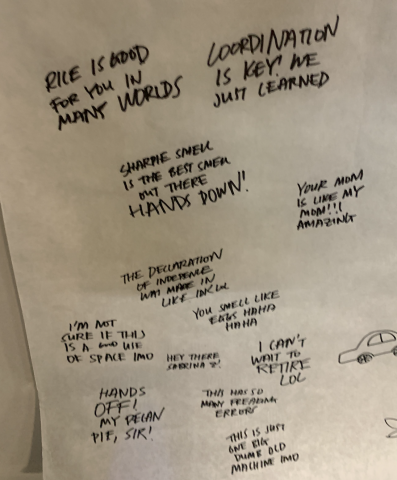 RICE IS GOOD
FOR YOU IN
MANY WORLDS
COORDINATION
IS KEY! WE
JUST LEARNED
SHARPIE SMELL
IS THE BEST SMELL
OUT THERE
HANDS DOWN!
YOUR MOM
IS LIKE MY
MOM!!!
AMAZING
THE DECLARATION
OF INDEPENCE
WAS MADE IN
LIKE IDK LOL
YOU SMELL LIKE
EGGS HAHA
HAHA
I'M NOT
SURE IF THIS
IS A GOOD USE
OF SPACE IMO
HEY THERE
SABRINA 2!
I CAN'T
WAIT TO
RETIRE
LOL
HANDS
OFF!
MY PECAN
PIE, SIR!
THIS HAS SO
MANY FREAKING
ERRORS
THIS IS JUST
ONE BIG
DUMB OLD
MACHINE IMO